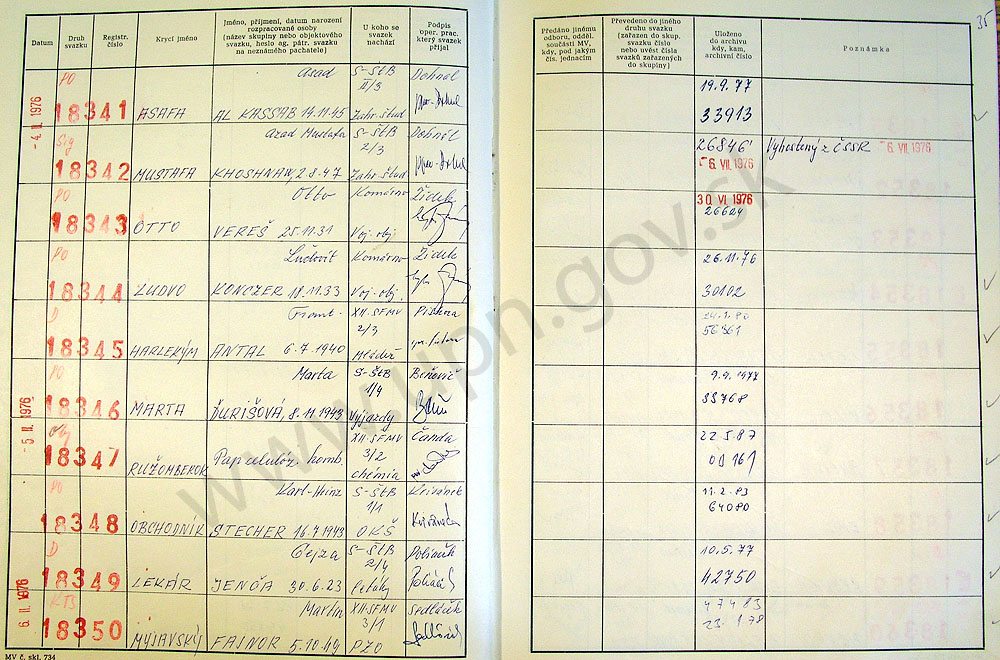 Datum
Druh svazku
Registr. číslo
Krycí jméno
Jméno, příjmení, datum narození rozpracované osoby (název skupiny nebo objektového svazku, heslo ag. pátr. svazku na neznámého pachatele)
U koho se svazek nachází
Podpis oper. prac. který svazek přijal
Předáno jinému odboru, odděl. součásti MV, kdy, pod jakým čís. jednacím
Převedeno do jiného druhu svazku (zařazen do skup. svazku číslo nebo uvést čísla svazků zařazených do skupiny)
Uloženo do archivu kdy, kam, archivní číslo
Poznámka
35
-4. II. 1976
PO Asad S-ŠtB Dohnal
18341 ASAFA AL KASSAB 14.11.45 II/3 Zahr. štud
19.9.77
33913
Sig Azad Mustafa S-ŠtB Dohnál
18342 MUSTAFA KHOSHNAN, 2.8.47 2/3 Zahr. štud
26846 Vyhostený z ČSSR -6. VII. 1976
-6. VII. 1976
PO Otto Komárno Židek
18343 OTTO VEREŠ 25.11.31 Voj. obj.
30. VI. 1976
26624
PO Ľudovít Komárno Židek
18344 LUDVO KONCZER 18.11.33 Voj. obj.
26.11.76
30102
D XII. SFMV
18345 HARLEKÝM ANTAL 6.7.1940 2/3 Mládež
56861
PO Marta S-ŠtB Beňovič
18346 MARTA ĎURIŠOVÁ, 8.11.1943 1/4 Výjazdy
9.9.1977
33768
-5. II. 1976
Obj XII. SFMV Čanda
18347 RUŽOMBEROK Pap. celulóz. komb. 3/2 chémia
22.5.87
PO Karl-Heinz S-ŠtB Krivánek
18348 OBCHODNÍK STECHER 16.7.1943 1/1 OKŠ
11.2.83
64080
D Gejza S-ŠtB Poliaček
18349 LEKÁR JENČA 30.6.23 2/4 Letáky
10.5.77
42750
6. II. 1976
Martin XII. SFMV Sedláčik
18350 MYJAVSKÝ FAJNOR 5.10.49 3/1 PZO
47483
MV č. skl. 734
www.upn.gov.sk